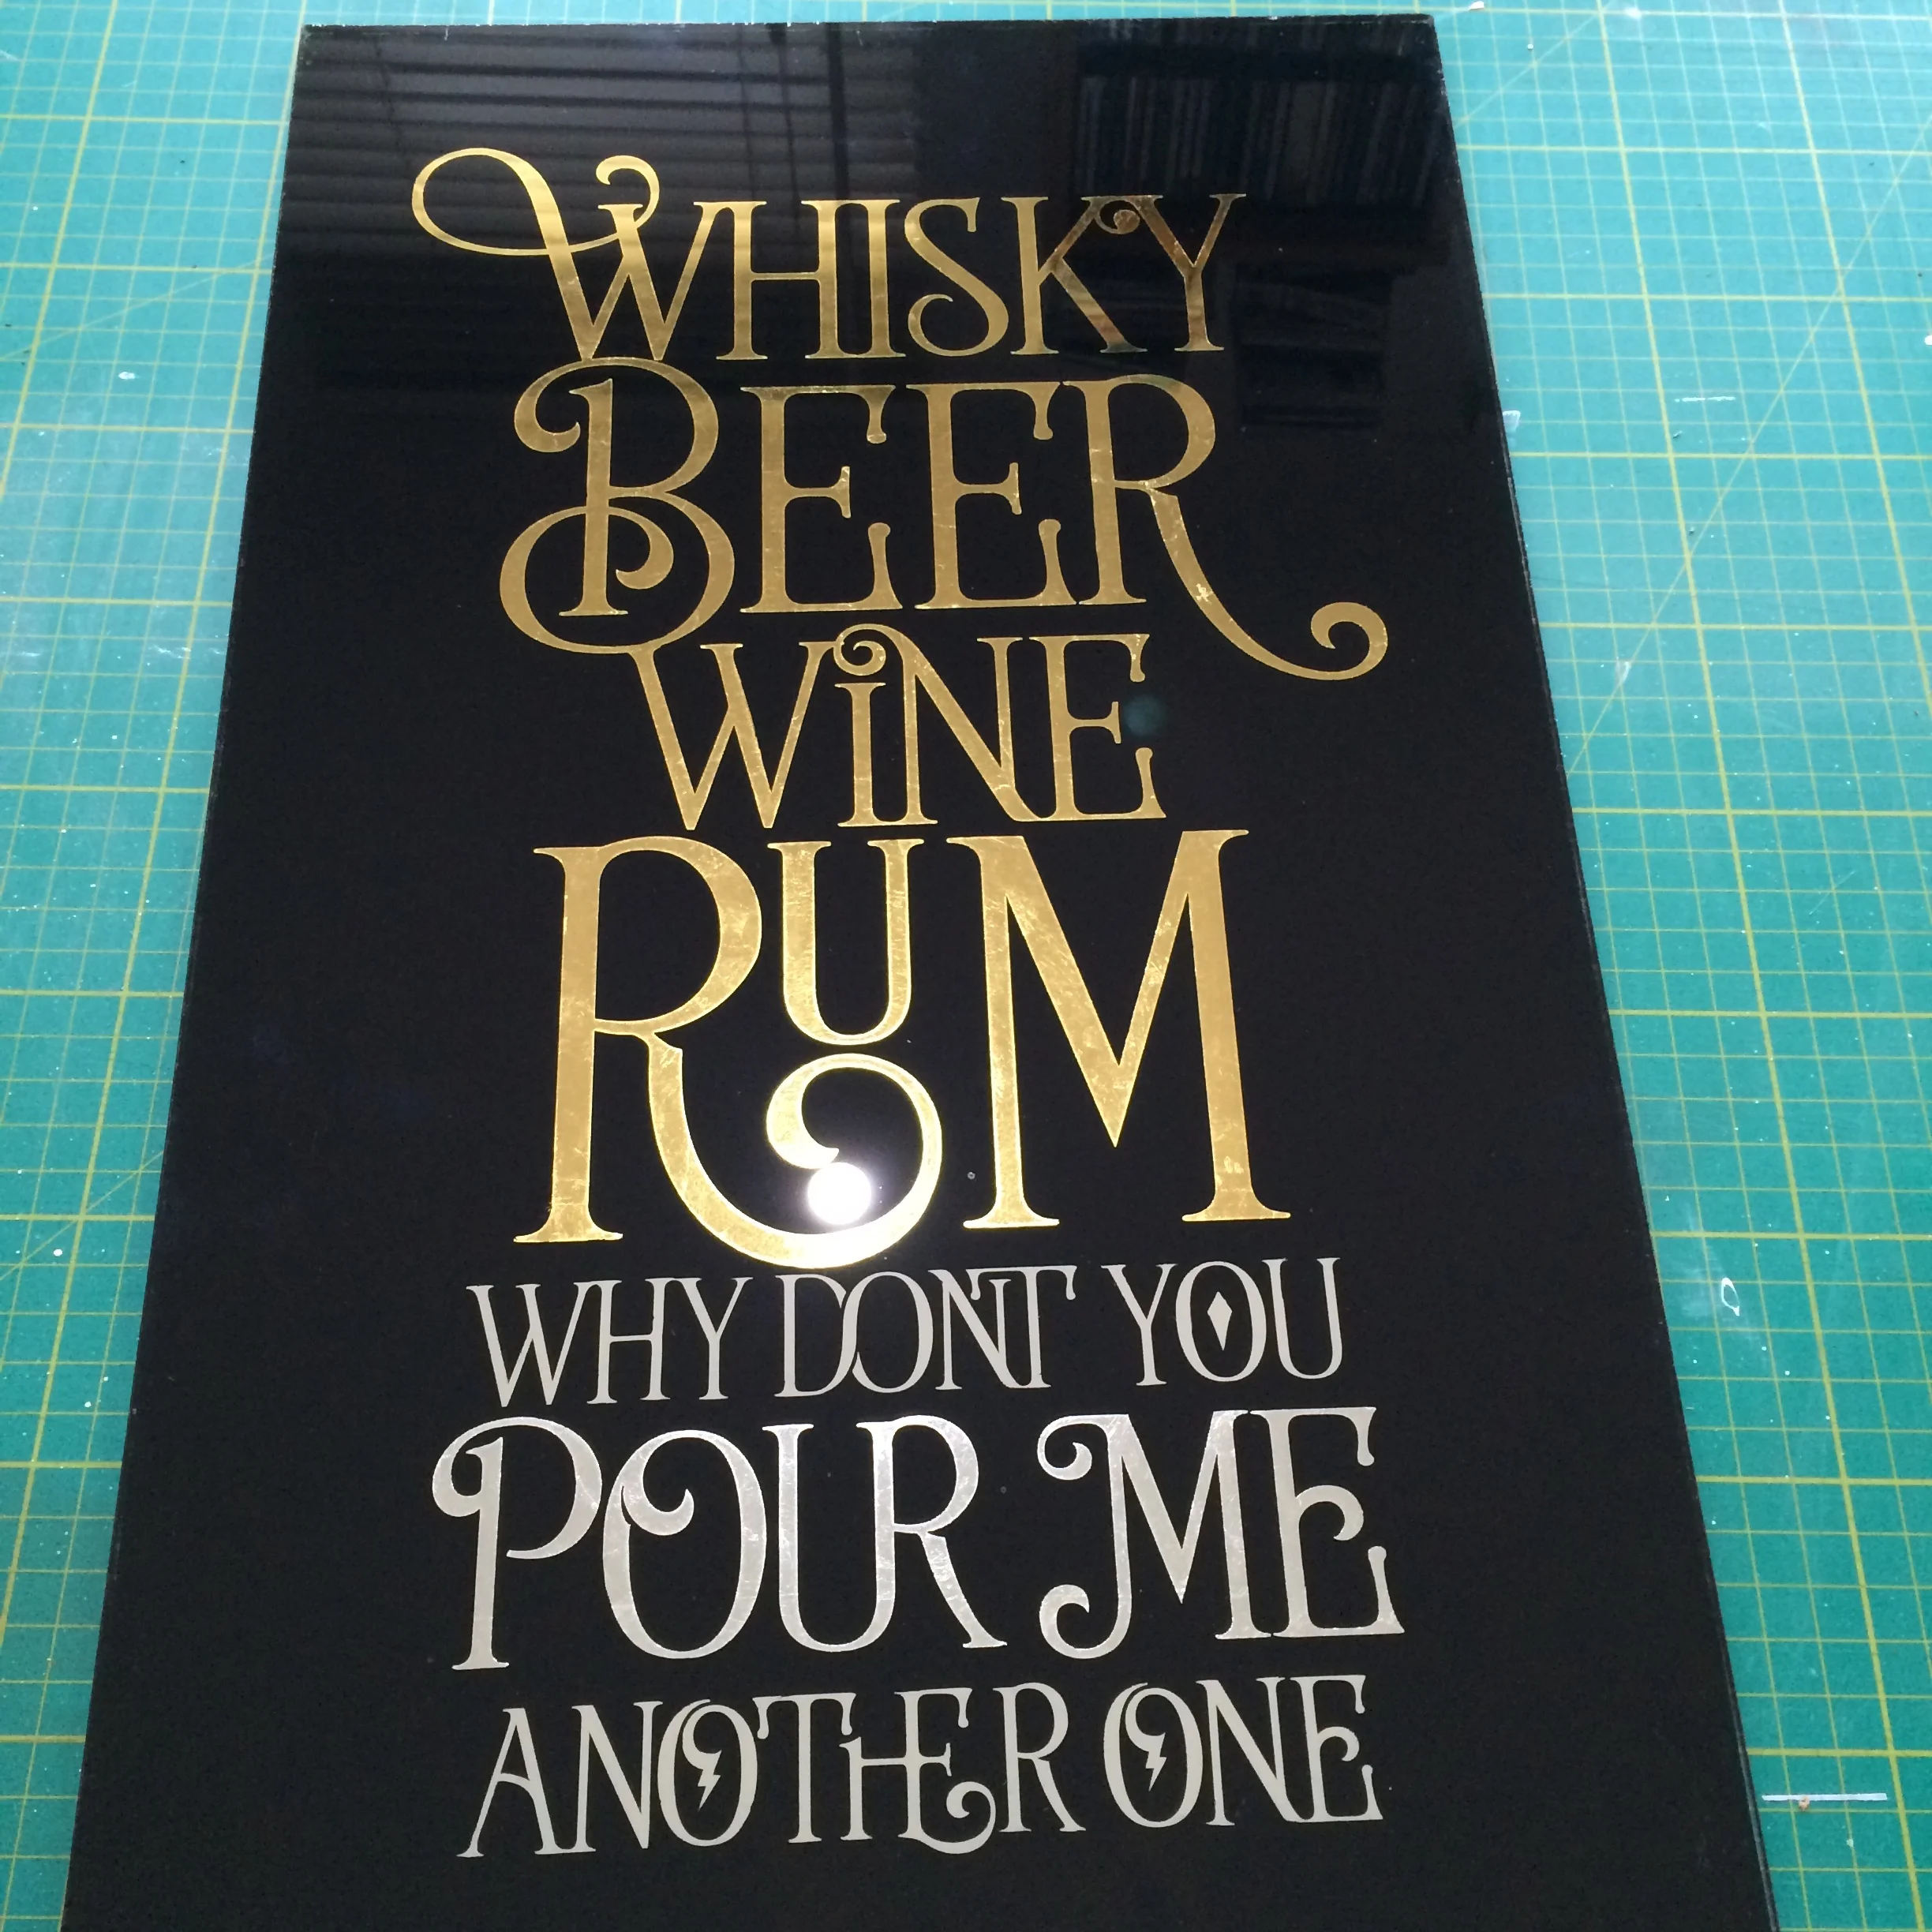 WHISKY
BEER
WiNE
RUM
WHY DONT YOU
POUR ME
ANOTHER ONE